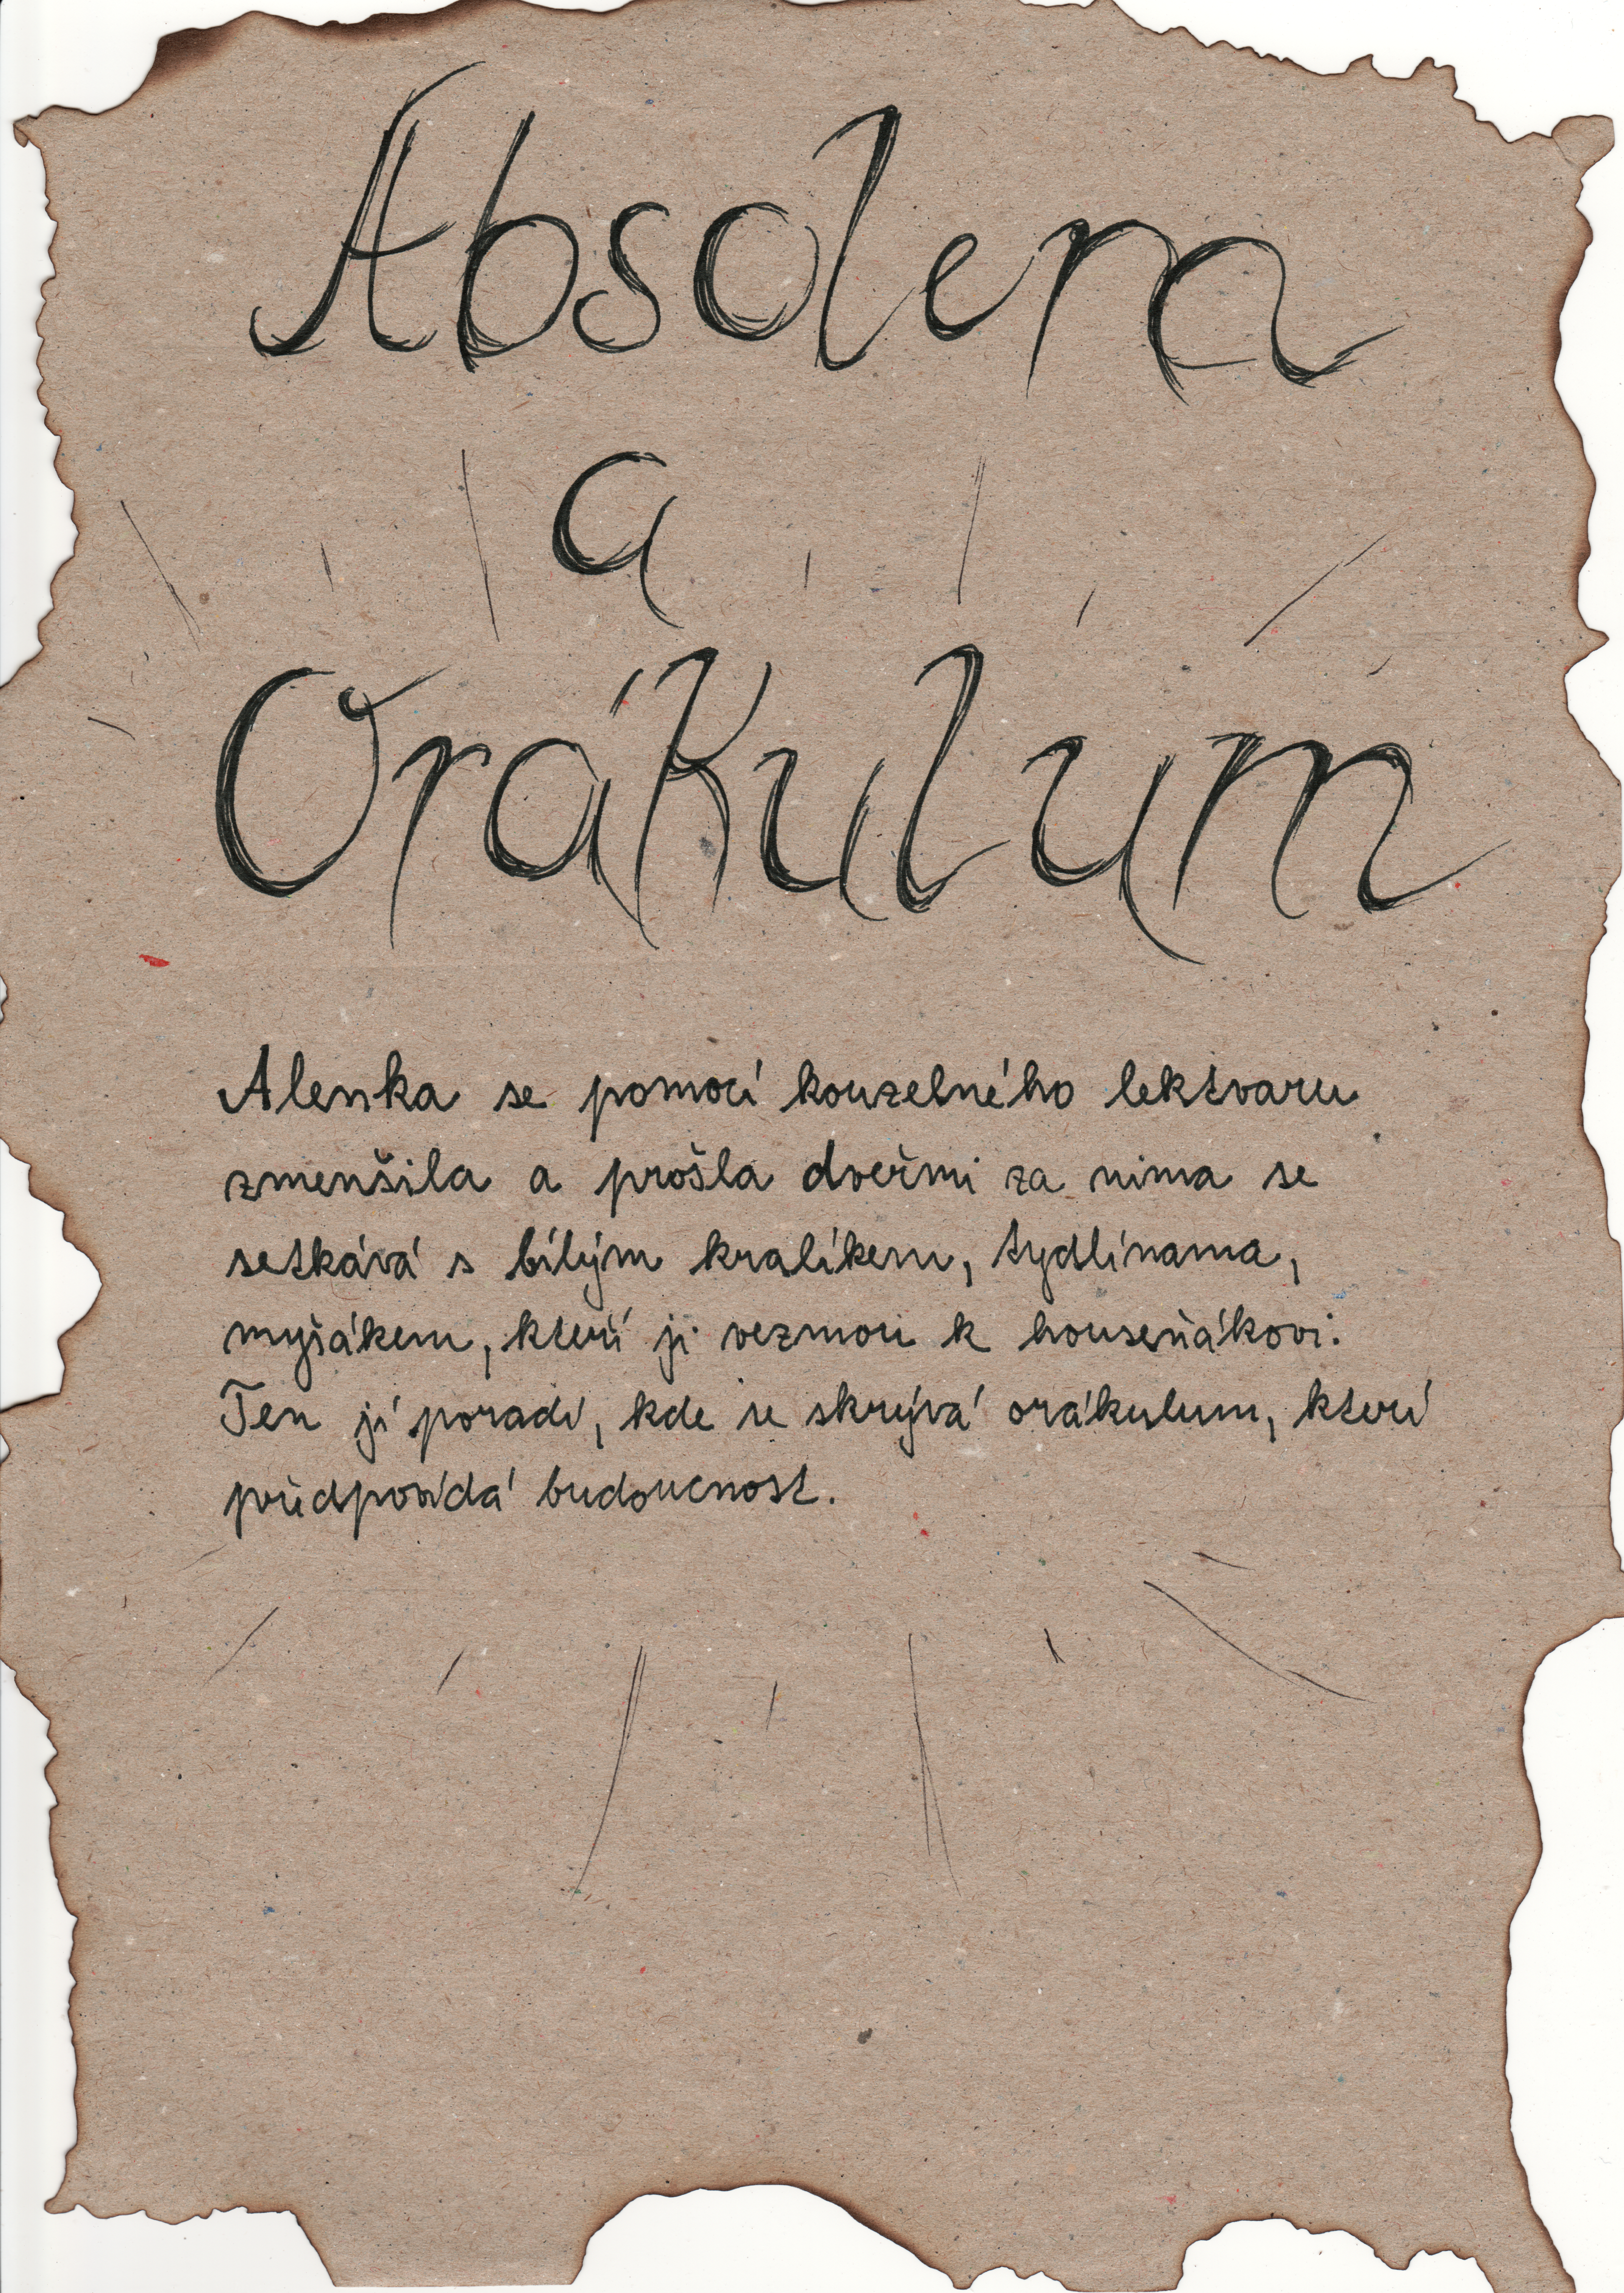 Absolem
a
Orákulum
Alenka se pomocí kouzelného lektvaru
zmenšila a prošla dveřmi za nima se
setkává s bílým kralíkem, tydlínama,
myšákem, kteří ji vezmou k houseňákovi.
Ten jí poradí, kde se skrývá orákulum, kterí
předpovídá budoucnost.